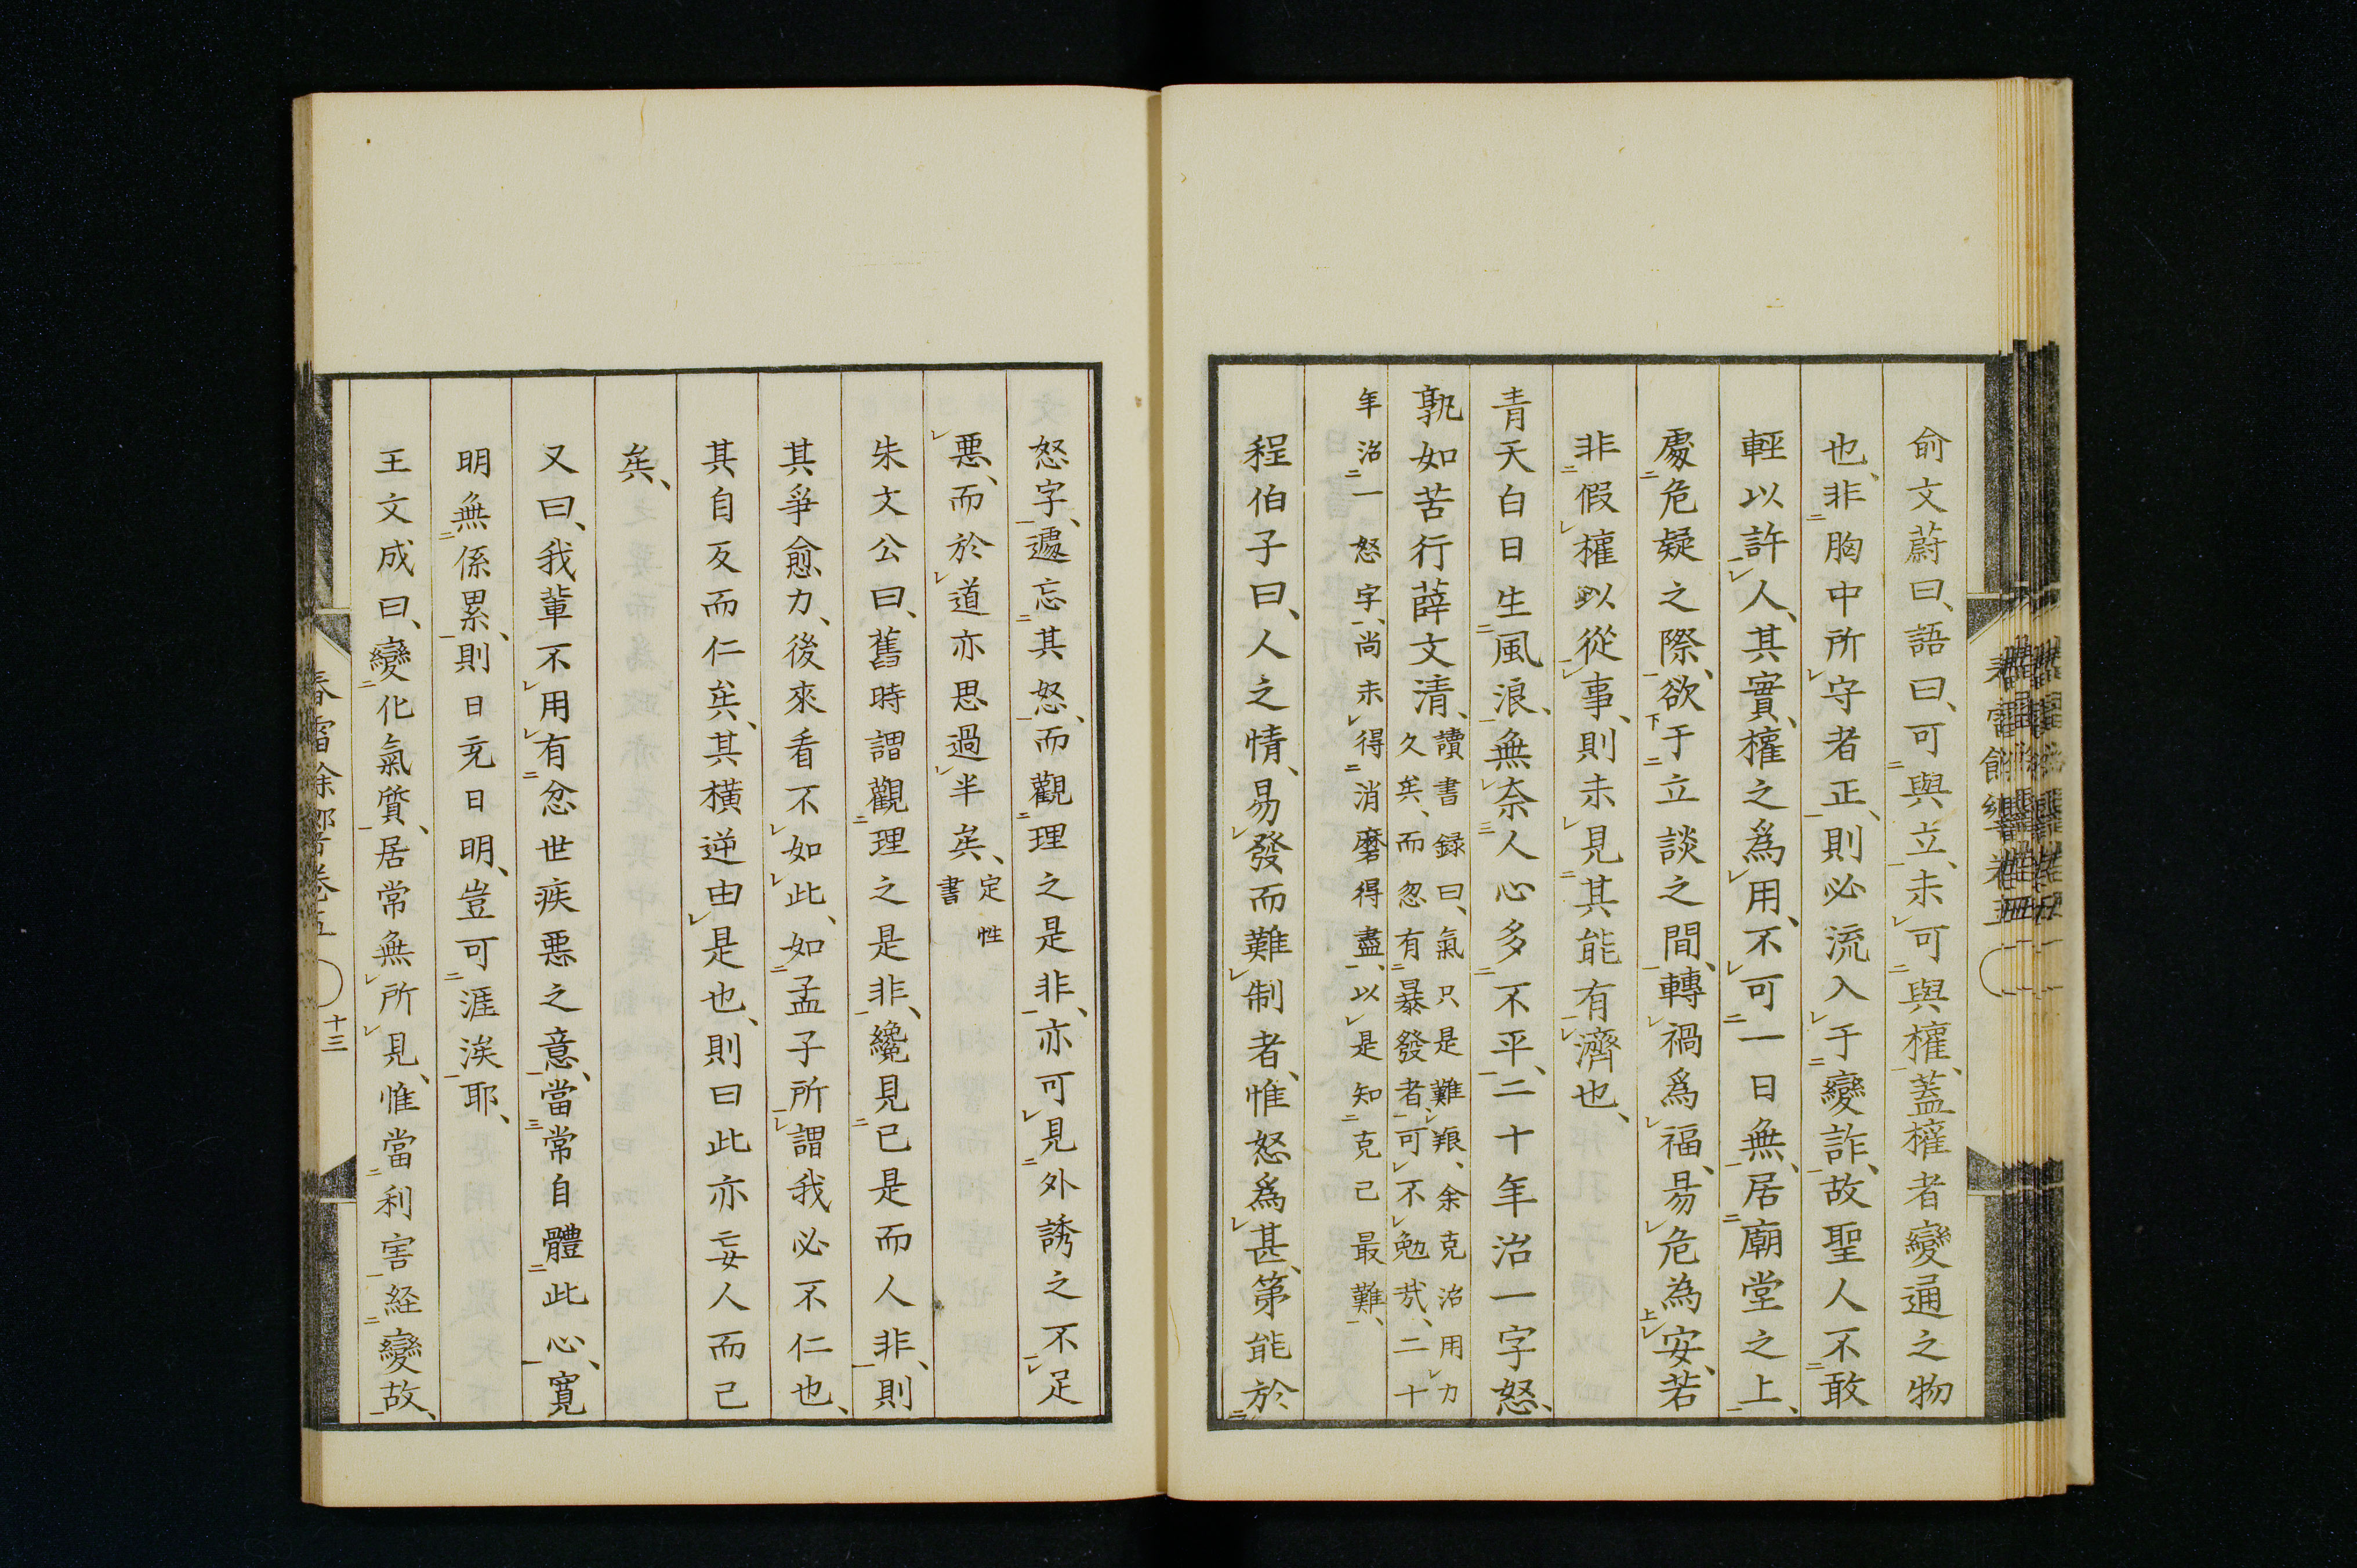 俞文蔚曰、語曰、可與立、未可與權、蓋權者變通之物
也、非胸中所守者正、則必流入于變詐、故聖人不敢
輕以許人、其實、權之爲用、不可一日無、居廟堂之上、
處危疑之際、欲于立談之間、轉禍爲福、易危為安、若
非假權以從事、則未見其能有濟也、
青天白日生風浪、無奈人心多不平、二十年治一字怒、
孰如苦行薛文清、讀書録曰、氣只是難㫰、余克治用力
久矣、而忽有暴發者、可不勉哉、二十
年治一怒字、尚未得消磨得盡、以是知克己最難、
程伯子曰、人之情、易發而難制者、惟怒爲甚、第能於
怒字、遽忘其怒、而觀理之是非、亦可見外誘之不足
悪、而於道亦思過半矣、定性
書
朱文公曰、舊時謂觀理之是非、纔見己是而人非、則
其爭愈力、後來看不如此、如孟子所謂我必不仁也、
其自反而仁矣、其橫逆由是也、則曰此亦妄人而已
矣、
又曰、我輩不用有忿世疾悪之意、當常自體此心、寬
明無係累、則日充日明、豈可涯涘耶、
王文成曰、變化氣質、居常無所見、惟當利害経變故、
十三